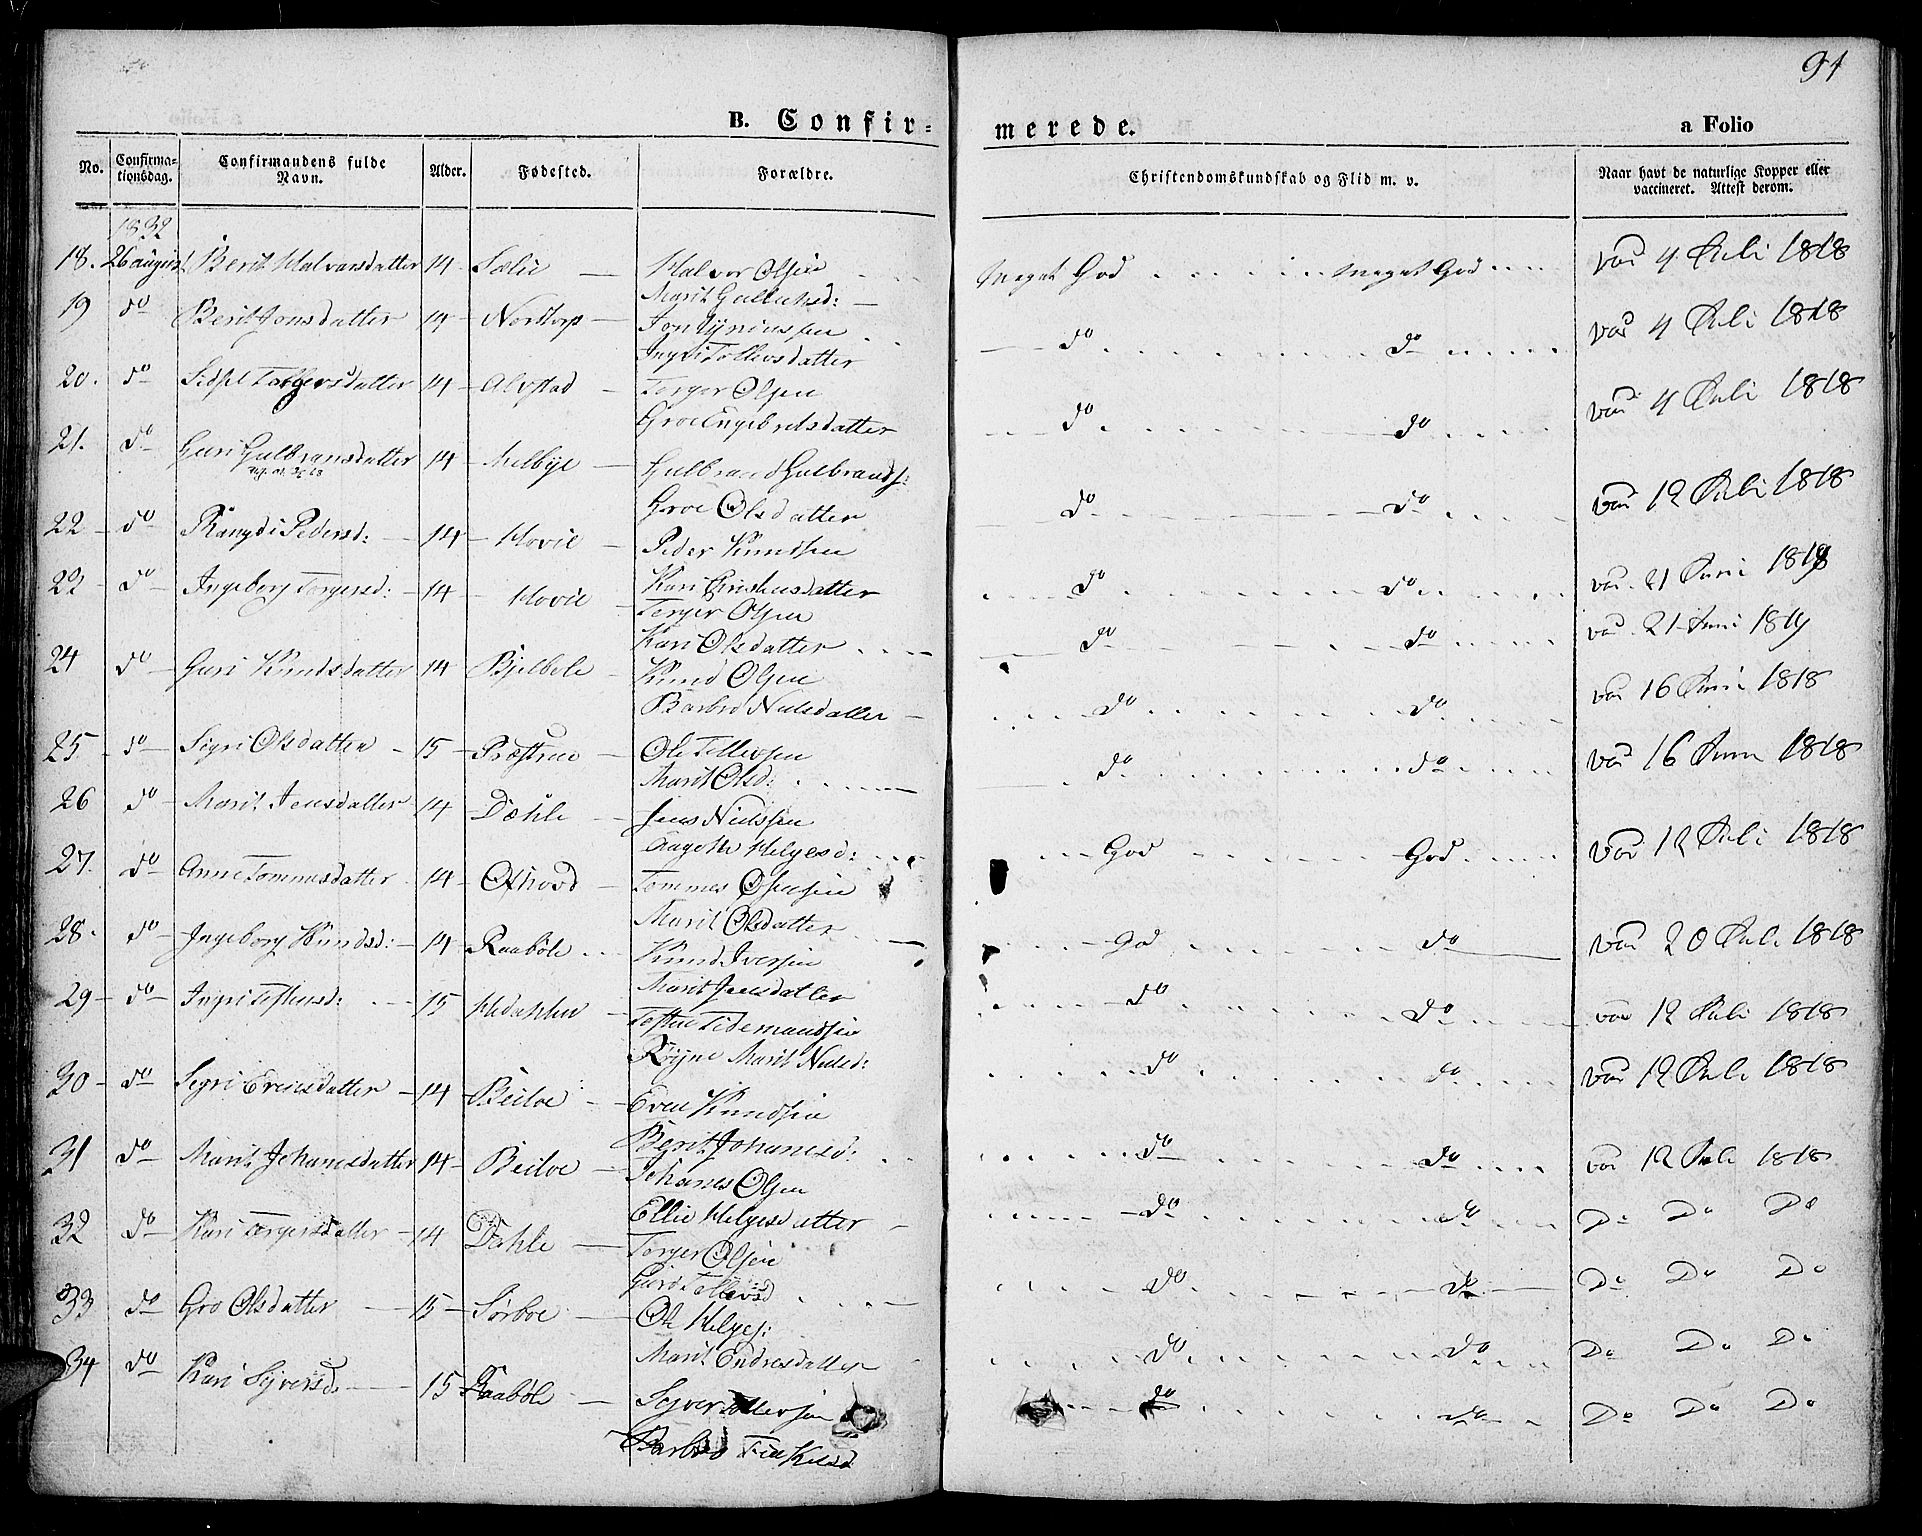 91
B. Confir=
merede.
a Folio
No.
Confirma-
tionsdag.
Confirmandens fulde
Navn.
Alder.
Fødested.
Forældre.
Christendomskundskab og Flid m. v.
Naar havt de naturlige Kopper eller
vaccineret. Attest derom.
1832
18. 26 august Berit Halvorsdatter 14 Sælie Halvor Olsen Meget God meget God vac 4 Juli 1818
Marit Gulliksd:
19 do Berit Jonsdatter 14 Nortorp Jon do do vac 4 Juli 1818
Ingri Tollevsdatter
20. do Sidsel 14 Alvstad Torger Olsen do do vac 4 Juli 1818
Groe Engebretsdatter
21. do Guri Gulbransdatter 14 Melbye Gulbrand Gulbrands: do do vac 12 Juli 1818
Groe Olsdatter
22 do Rangdi Pedersd: 14 Hovie Peder Knudsen do do vac. 21 Juni 1819
Kari datter
23 do Ingeborg Torgersd: 14 Hovie Torger Olsen do do vac. 21 Juni 1819
Kari Olsdatter
24 do Guri Knudsdatter 14 Bjelbole Knud Olsen do do vac 16 Juni 1818
Barbro Nielsdatter
25 do Sigri Olsdatter 15 Præstrue Ole Tollevsen do do vac 16 Juni 1818
Marit Olsd:
26 do Marit Jensdatter 14 Dæhle Jens Nielsen God God vac 12 Juli 1818
Aagotte Helgesd:
27. do Anne Tommesdatter 14 Tommes Olsen God do vac 20 Juli 1818
Marit Olsdatter
28. do Ingeborg Knudsd: 14 Raabøle Knud Iversen do do vac 12 Juli 1818
Marit Jensdatter
29 do Ingri 15 Tidemandsen do do vac 12 Juli 1818
Røyne Marit Nielsd:
30 do Sigri Evensdatter 14 Beiloe Even Knudsen do do vac 12 Juli 1818
Berit Johanesd:
31 do Marit Johanesdatter 14 Beiloe Johanes Olsen do do Do Do Do
Ellie Helgesdatter
32 do Kari Torgersdatter 14 Dahle Torger Olsen do do Do Do Do
Guro Tollevsd
33 do Gro Olsdatter 15 Sørboe Ole Helges: do do Do Do Do
Marit Endresdatter
34 do Kari Syversd. 15 Raabøle Syver Tollevsen do do Do Do Do
Barbro